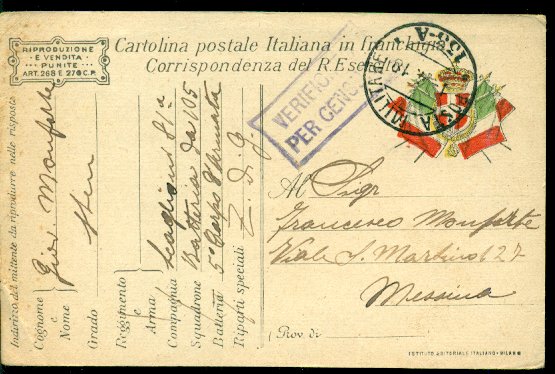 RIPRODUZIONE
E VENDITA
PUNITE
ART. 268 E 270 C.P.
Cartolina postale Italiana in franchigia
Corrispondenza del R. Esercito
VERIFIC
PER CENS
POSTA MILITARE
135-A
Indirizzo del mittente da riprodurre nelle risposte
Cognome e Nome Giov. Monforte
Grado Sten
Reggimento
e
Arma
Compagnia
Squadrone Batteria da 105
Batteria 5° Corpo d'Armata
Riparti speciali Z. d. g.
Al Sigr
Francesco Monforte
Viale S. Martino 627
Messina
(Prov. di
ISTITUTO EDITORIALE ITALIANO - MILANO